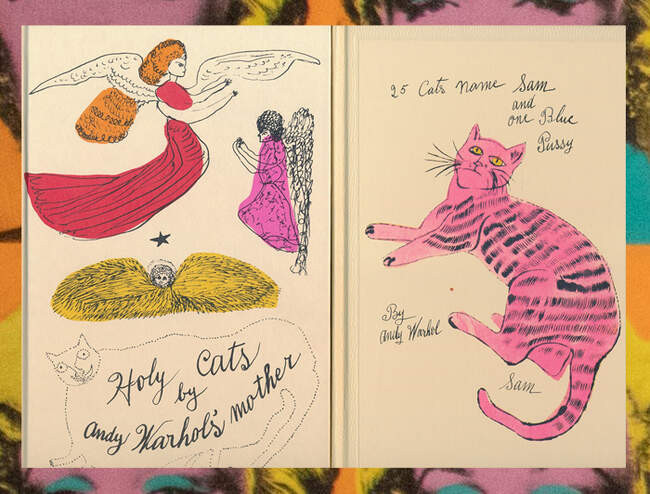 Holy Cats
by
andy Warhol's mother
25 Cats name Sam
and
one Blue
Pussy
By
andy Warhol
Sam